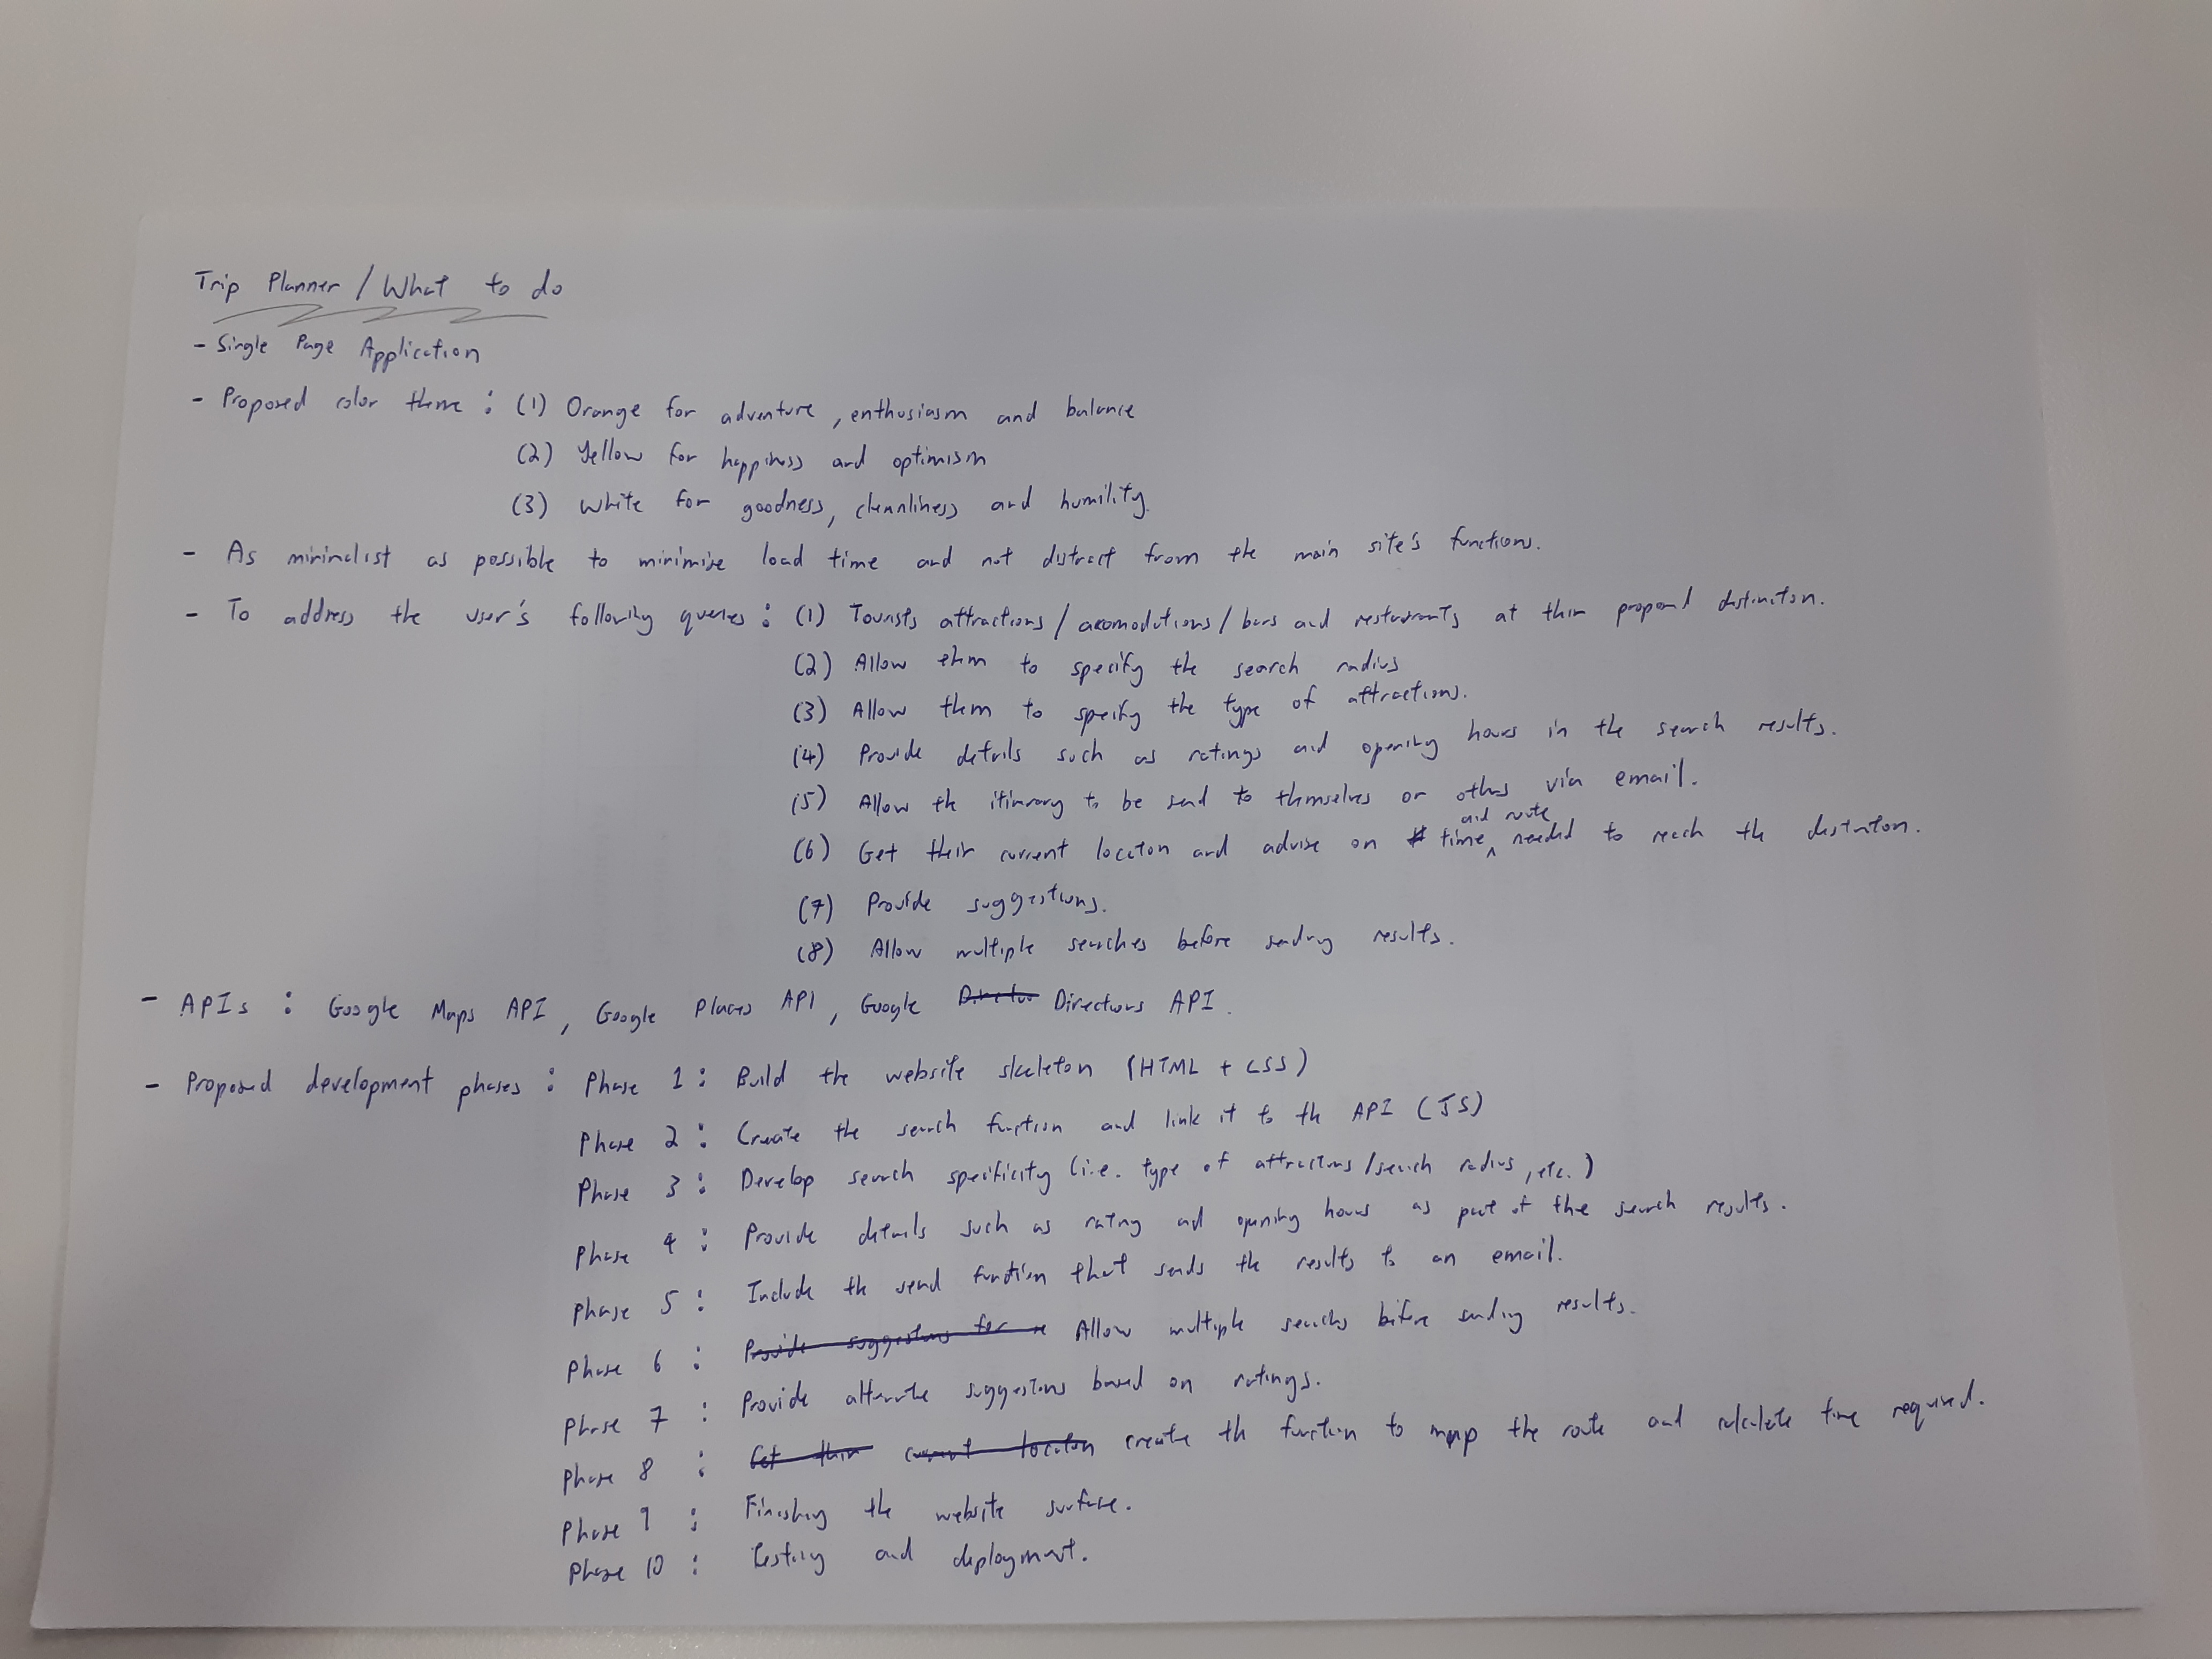 Trip Planner / What to do
- Single Page Application
- Proposed color theme : (1) Orange for adventure, enthusiasm and balance
(2) Yellow for happiness and optimism
(3) White for goodness, cleanliness and humility.
- As minimalist as possible to minimize load time and not distract from the main site's functions.
- To address the user's following queries : (1) Tourists attractions / accomodations / bars and restaurants at their proposed destination.
(2) Allow them to specify the search radius
(3) Allow them to specify the type of attractions.
(4) Provide details such as ratings and opening hours in the search results.
(5) Allow the itinerary to be send to themselves or others via email.
(6) Get their current location and advise on time and route needed to reach the destination.
(7) Provide suggestions.
(8) Allow multiple searches before sending results.
- APIs : Google Maps API, Google Places API, Google Directions API.
- Proposed development phases : Phase 1 : Build the website skeleton (HTML + CSS)
Phase 2 : Create the search function and link it to the API (JS)
Phase 3 : Develop search specificity (i.e. type of attractions / search radius, etc.)
Phase 4 : Provide details such as rating and opening hours as part of the search results.
Phase 5 : Include the send function that sends the results to an email.
Phase 6 : Provide suggestions for Allow multiple searches before sending results.
Phase 7 : Provide alternate suggestions based on ratings.
Phase 8 : Get their current location create the function to map the route and calculate time required.
Phase 9 : Finishing the website surface.
Phase 10 : Testing and deployment.